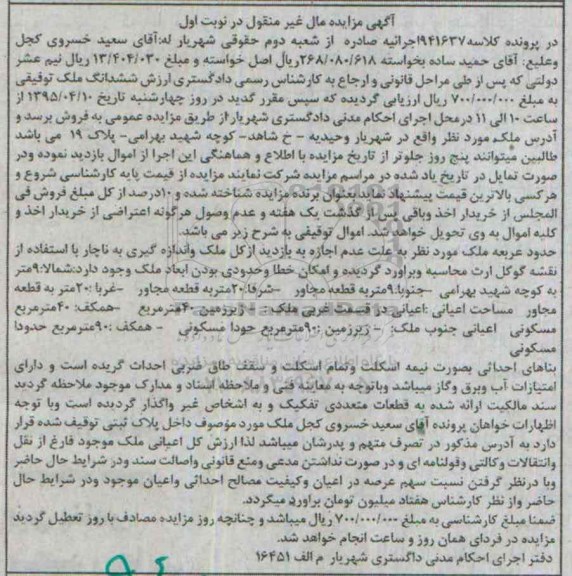 آگهی مزایده مال غیر منقول در نوبت اول
در پرونده کلاسه۹۴۱۶۳۷اجرائیه صادره از شعبه دوم حقوقی شهریار له:آقای سعید خسروی کجل
وعلیع: آقای حمید ساده بخواسته ۲۶۸/۰۸۰/۶۱۸ریال اصل خواسته و مبلغ ۱۳/۴۰۴/۰۳۰ ریال نیم عشر
دولتی که پس از طی مراحل قانونی و ارجاع به کارشناس رسمی دادگستری ارزش ششدانگ ملک توقیفی
به مبلغ ۷۰۰/۰۰۰/۰۰۰ ریال ارزیابی گردیده که سپس مقرر گدید در روز چهارشنبه تاریخ ۱۳۹۵/۰۴/۱۰ از
ساعت ۱۰ الی ۱۱ درمحل اجرای احکام مدنی دادگستری شهریار از طریق مزایده عمومی به فروش برسد و
آدرس ملک مورد نظر واقع در شهریار وحیدیه - خ شاهد- کوچه شهید بهرامی- پلاک ۱۹ می باشد
طالبین میتوانند پنج روز جلوتر از تاریخ مزایده با اطلاع و هماهنگی این اجرا از اموال بازدید نموده ودر
صورت تمایل در تاریخ یاد شده در مراسم مزایده شرکت نمایند مزایده از قیمت پایه کارشناسی شروع و
هرکسی بالاترین قیمت پیشنهاد دهد بعنوان برنده مزایده شناخته شده و ۱۰درصد از کل مبلغ فروش فی
المجلس از خریدار اخذ وباقی پس از گذشت یک هفته و عدم وصول هرگونه اعتراضی از خریدار اخذ و
کلیه اموال به وی تحویل خواهد شد. اموال توقیفی به شرح زیر می باشد.
حدود عربعه ملک مورد نظر به علت عدم اجازه به بازدید ازکل ملک واندازه گیری به ناچار با استفاده از
نقشه گوگل ارث محاسبه وبراورد گردیده و امکان خطا وحدودی بودن ابعاد ملک وجود دارد:شمالا:۹متر
به کوچه شهید بهرامی -جنوبا:۹متربه قطعه مجاور -شرقا:۲۰متربه قطعه مجاور -غربا :۲۰متر به قطعه
مجاور مساحت اعیانی :اعیانی در قسمت غربی ملک: - زیرزمین ۴۰مترمربع -همکف: ۴۰مترمربع
مسکونی اعیانی جنوب ملک: - زیرزمین :۹۰مترمربع حدودا مسکونی - همکف :۹۰مترمربع حدودا
مسکونی
بناهای احداثی بصورت نیمه اسکلت وتمام اسکلت و سقف طاق ضربی احداث گریده است و دارای
امتیازات آب وبرق وگاز میباشد وباتوجه به معاینه فنی و ملاحظه اسناد و مدارک موجود ملاحظه گردید
سند مالکیت ارائه شده به قطعات متعددی تفکیک و به اشخاص غیر واگذار گردیده است وبا توجه
اظهارات خواهان پرونده آقای سعید خسروی کجل ملک مورد موصوف داخل پلاک ثبتی توقیف شده قرار
دارد به آدرس مذکور در تصرف متهم و پدرشان میباشد لذا ارزش کل اعیانی ملک موجود فارغ از نقل
وانتقالات وکالتی وقولنامه ای و در صورت نداشتن مدعی ومنع قانونی واصالت سند ودر شرایط حال حاضر
وبا درنظر گرفتن نسبت سهم عرصه در اعیان وکیفیت مصالح احداثی واعیان موجود ودر شرایط حال
حاضر واز نظر کارشناس هفتاد میلیون تومان براورد میگردد.
ضمنا مبلغ کارشناسی به مبلغ ۷۰۰/۰۰۰/۰۰۰ ریال میباشد و چنانچه روز مزایده مصادف با روز تعطیل گردید
مزایده در فردای همان روز و ساعت انجام خواهد شد.
دفتر اجرای احکام مدنی داگستری شهریار م الف ۱۶۴۵۱